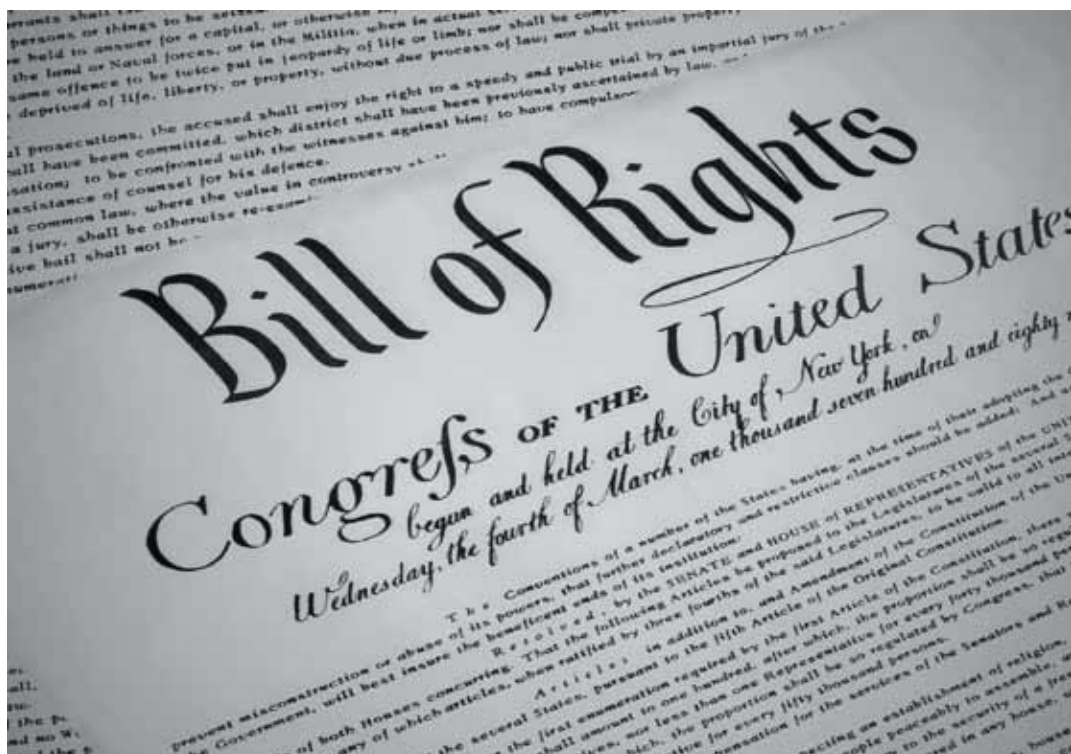 rrants shall
persons or things to be seized
be held to answer for a capital, or otherwise
the land or Naval forces, or in the Militia, when in actual
same offence to be twice put in jeopardy of life or limb; nor shall be
deprived of life, liberty, or property, without due process of law; nor shall private property
al prosecutions, the accused shall enjoy the right to a speedy and public trial by an impartial jury of the
all have been committed, which district shall have been previously ascertained by law, and
sation; to be confronted with the witnesses against him; to have compulsory
ssistance of counsel for his defence.
t common law, where the value in controversy
a jury, shall be otherwise
ive bail shall not be
numerati
Bill of Rights
Congreſs OF THE United States
begun and held at the City of New York, on
Wednesday, the fourth of March, one thousand seven hundred and eighty
The Conventions of a number of the States having, at the time of their adopting the
prevent misconstruction or abuse of its powers, that further declaratory and restrictive clauses should be added: And
the Government, will best insure the beneficent ends of its institution:
Resolved, by the SENATE and HOUSE of REPRESENTATIVES of the
of both Houses concurring, That the following Articles be proposed to the Legislatures of the several
any of which articles, when ratified by three fourths of the said Legislatures, to be valid to all
Articles in addition to, and Amendment of the Constitution of the
the several States, pursuant to the fifth Article of the Original Constitution.
the first enumeration required by the first Article of the Constitution, there
shall amount to one hundred, after which, the proportion shall be so
not less than one Representative for every forty thousand
which, the proportion shall be so regulated by Congress, that
for every fifty thousand persons.
for the services of the Senators and
an establishment of religion,
people peaceably to assemble,
the security of a
in any house,